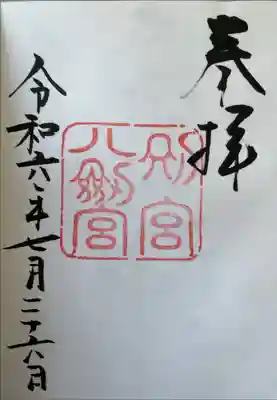 奉拝
別宮
八剣宮
令和六年七月二十六日